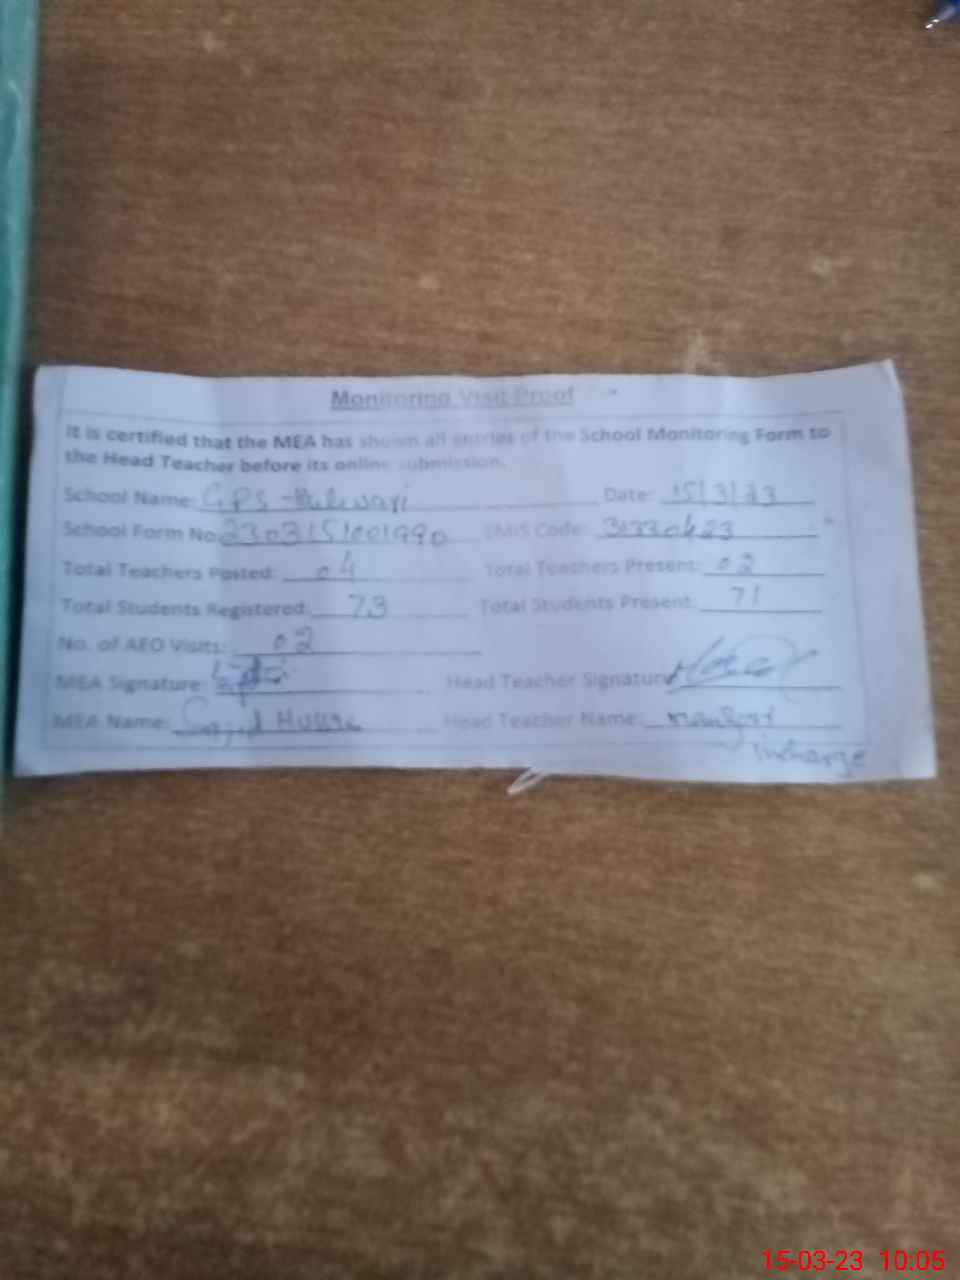 Monitoring Visit Proof
It is certified that the MEA has shown all entries of the School Monitoring Form to
the Head Teacher before its online submission.
School Name: GPS Date: 15/3/23
School Form No: EMIS Code: 31330423
Total Teachers Posted: 04 Total Teachers Present: 02
Total Students Registered: 73 Total Students Present: 71
No. of AEO Visits: 02
MEA Signature: Head Teacher Signature
MEA Name: Sajid Head Teacher Name:
incharge
15-03-23 10:05